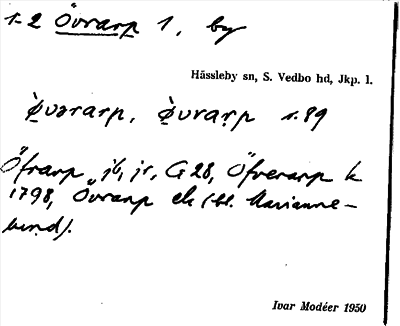 1-2 Övrarp 1, by
Hässleby sn, S. Vedbo hd, Jkp. l.
ø̀vərarp, ø̀vrarp 1.89
Öfrarp jb, jr, G 28, Öfverarp k
1798, Övrarp ek (bl. Marianne-
lund).
Ivar Modéer 1950